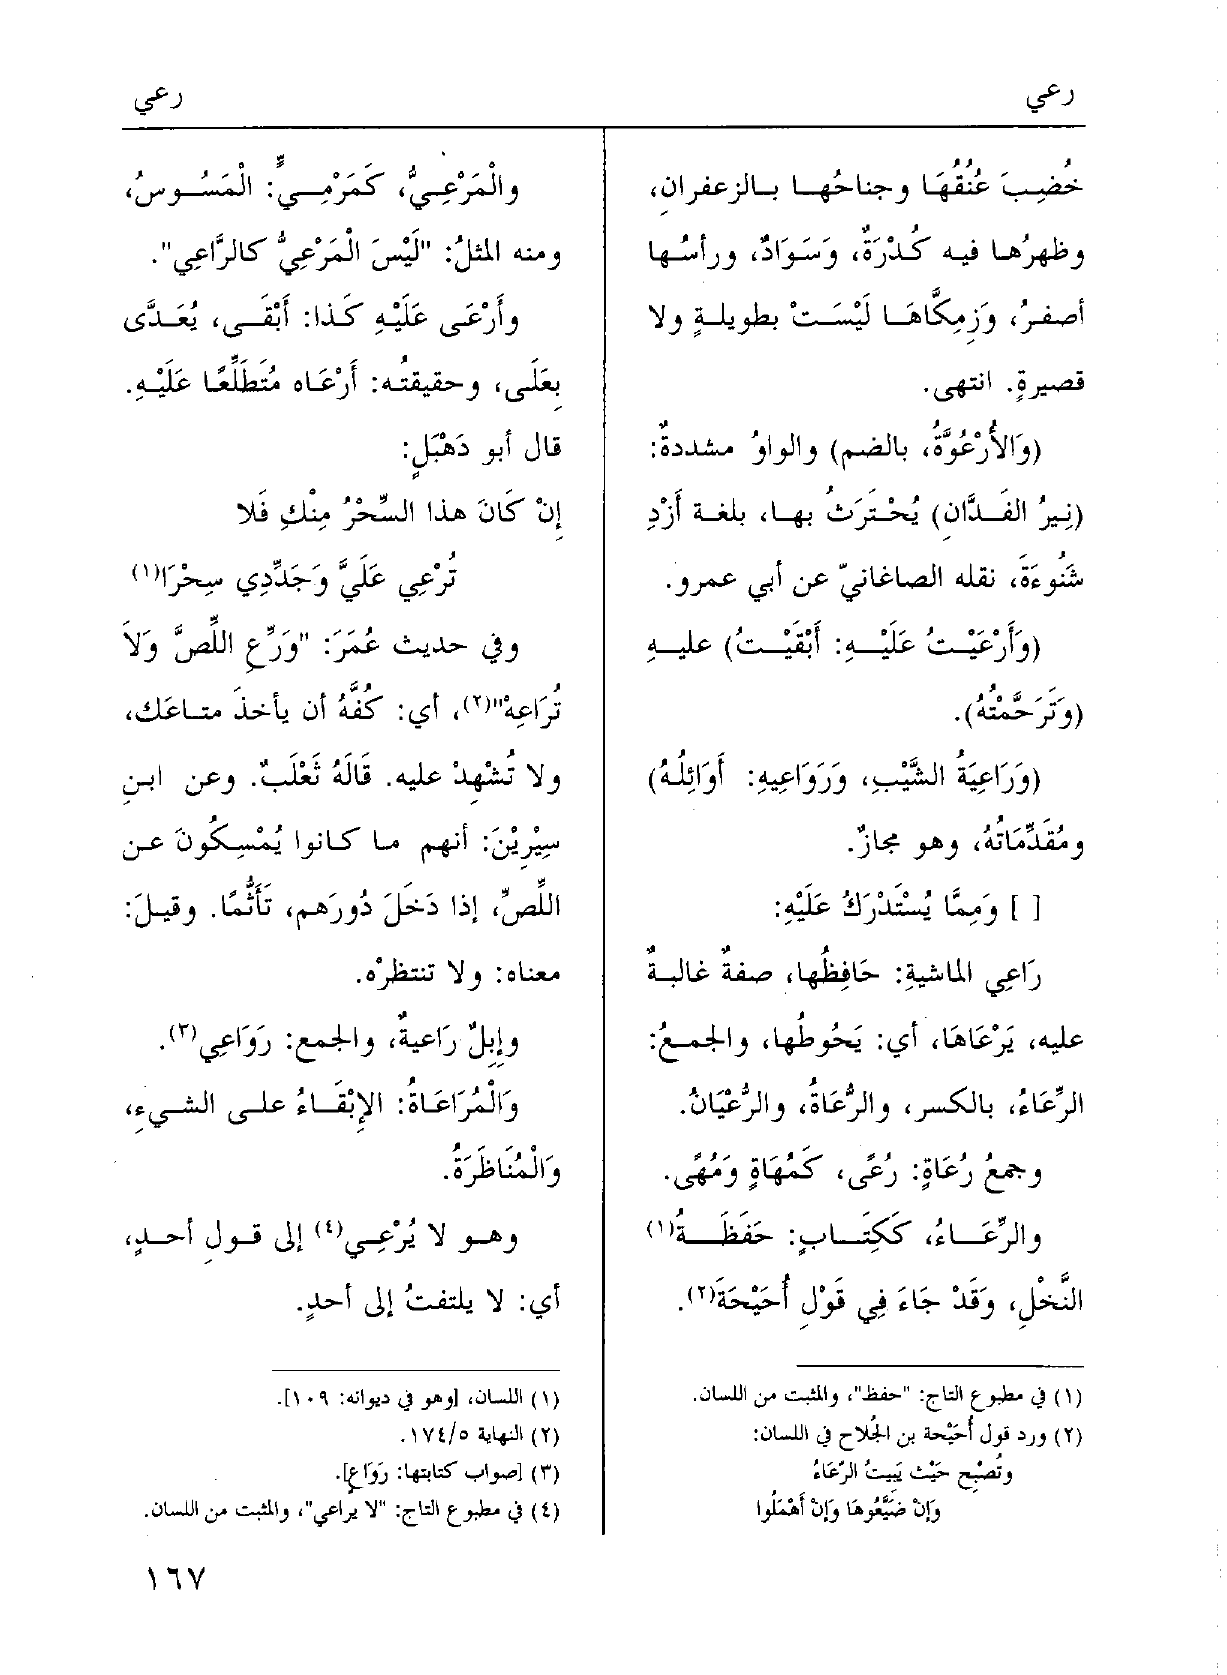 رعي
رعي
خُضِبَ عُنُقُهَا وجناحُهـا بـالزعفرانِ،
وظهرُهـا فيـه كُـدْرَةٌ، وَسَـوَادٌ، ورأسُـها
أصفـرُ، وَزِمِكَّاهَـا لَيْسَـتْ بطويلـةٍ ولا
قصيرةٍ. انتهى.
(وَالأُرْعُوَّةُ، بالضم) والواوُ مشددةٌ:
(نِـيرُ الفَـدَّانِ) يُحْـتَرَثُ بهـا، بلغـة أَزْدِ
شَنُوءَةَ، نقله الصاغانيّ عن أبي عمرو.
(وَأَرْعَيْـتُ عَلَيْـهِ: أَبْقَيْـتُ) عليـهِ
(وَتَرَحَّمْتُهُ).
(وَرَاعِيَةُ الشَّيْبِ، وَرَوَاعِيهِ: أَوَائِلُهُ)
ومُقَدِّمَاتُهُ، وهو مجازٌ.
[ ] وَمِمَّا يُسْتَدْرَكُ عَلَيْهِ:
رَاعِي الماشيةِ: حَافِظُها، صفةٌ غالبةٌ
عليه، يَرْعَاهَا، أي: يَحُوطُها، والجمـعُ:
الرِّعَاءُ، بالكسر، والرُّعَاةُ، والرُّعْيَانُ.
وجمعُ رُعَاةٍ: رُعًى، كَمُهَاةٍ وَمُهًى.
والرِّعَـــاءُ، كَكِتَـــابٍ: حَفَظَـــةُ(١)
النَّخْلِ، وَقَدْ جَاءَ فِي قَوْلِ أُحَيْحَةَ(٢).
(١) في مطبوع التاج: "حفظ"، والمثبت من اللسان.
(٢) ورد قول أُحَيْحة بن الجُلاح في اللسان:
وتُصْبِح حَيْث يَبيتُ الرِّعَاءُ
وَإِنْ ضَيَّعُوهَا وَإِنْ أَهْمَلُوا
والْمَرْعِـيُّ، كَمَرْمِـيٍّ: الْمَسُـوسُ،
ومنه المثلُ: "لَيْسَ الْمَرْعِيُّ كالرَّاعِي".
وأَرْعَـى عَلَيْهِ كَـذا: أَبْقَـى، يُعَـدَّى
بِعَلَـى، وحقيقتُـه: أَرْعَـاه مُتَطَلِّعًـا عَلَيْـهِ.
قال أبو دَهْبَلٍ:
إِنْ كَانَ هذا السِّحْرُ مِنْكِ فَلا
تُرْعِي عَلَيَّ وَجَدِّدِي سِحْرَا(١)
وفي حديث عُمَرَ: "وَرِّعِ اللِّصَّ وَلاَ
تُرَاعِهْ"(٢)، أي: كُفَّهُ أن يأخذَ متـاعَك،
ولا تُشْهِدْ عليه. قَالَهُ ثَعْلَبٌ. وعن ابـنِ
سِيْرِيْنَ: أنهم مـا كـانوا يُمْسِـكُونَ عـن
اللِّصِّ، إذا دَخَلَ دُورَهم، تَأَثُّمًا. وقيـلَ:
معناه: ولا تنتظرْه.
وإِبِلٌ رَاعيةٌ، والجمع: رَوَاعِي(٣).
وَالْمُرَاعَـاةُ: الإِبْقَـاءُ علـى الشـيءِ،
وَالْمُنَاظَرَةُ.
وهـو لا يُرْعِـي(٤) إلى قـولِ أحـدٍ،
أي: لا يلتفتُ إلى أحدٍ.
(١) اللسان، [وهو في ديوانه: ١٠٩].
(٢) النهاية ٥/١٧٤.
(٣) [صواب كتابتها: رَوَاعٍ].
(٤) في مطبوع التاج: "لا يراعي"، والمثبت من اللسان.
١٦٧